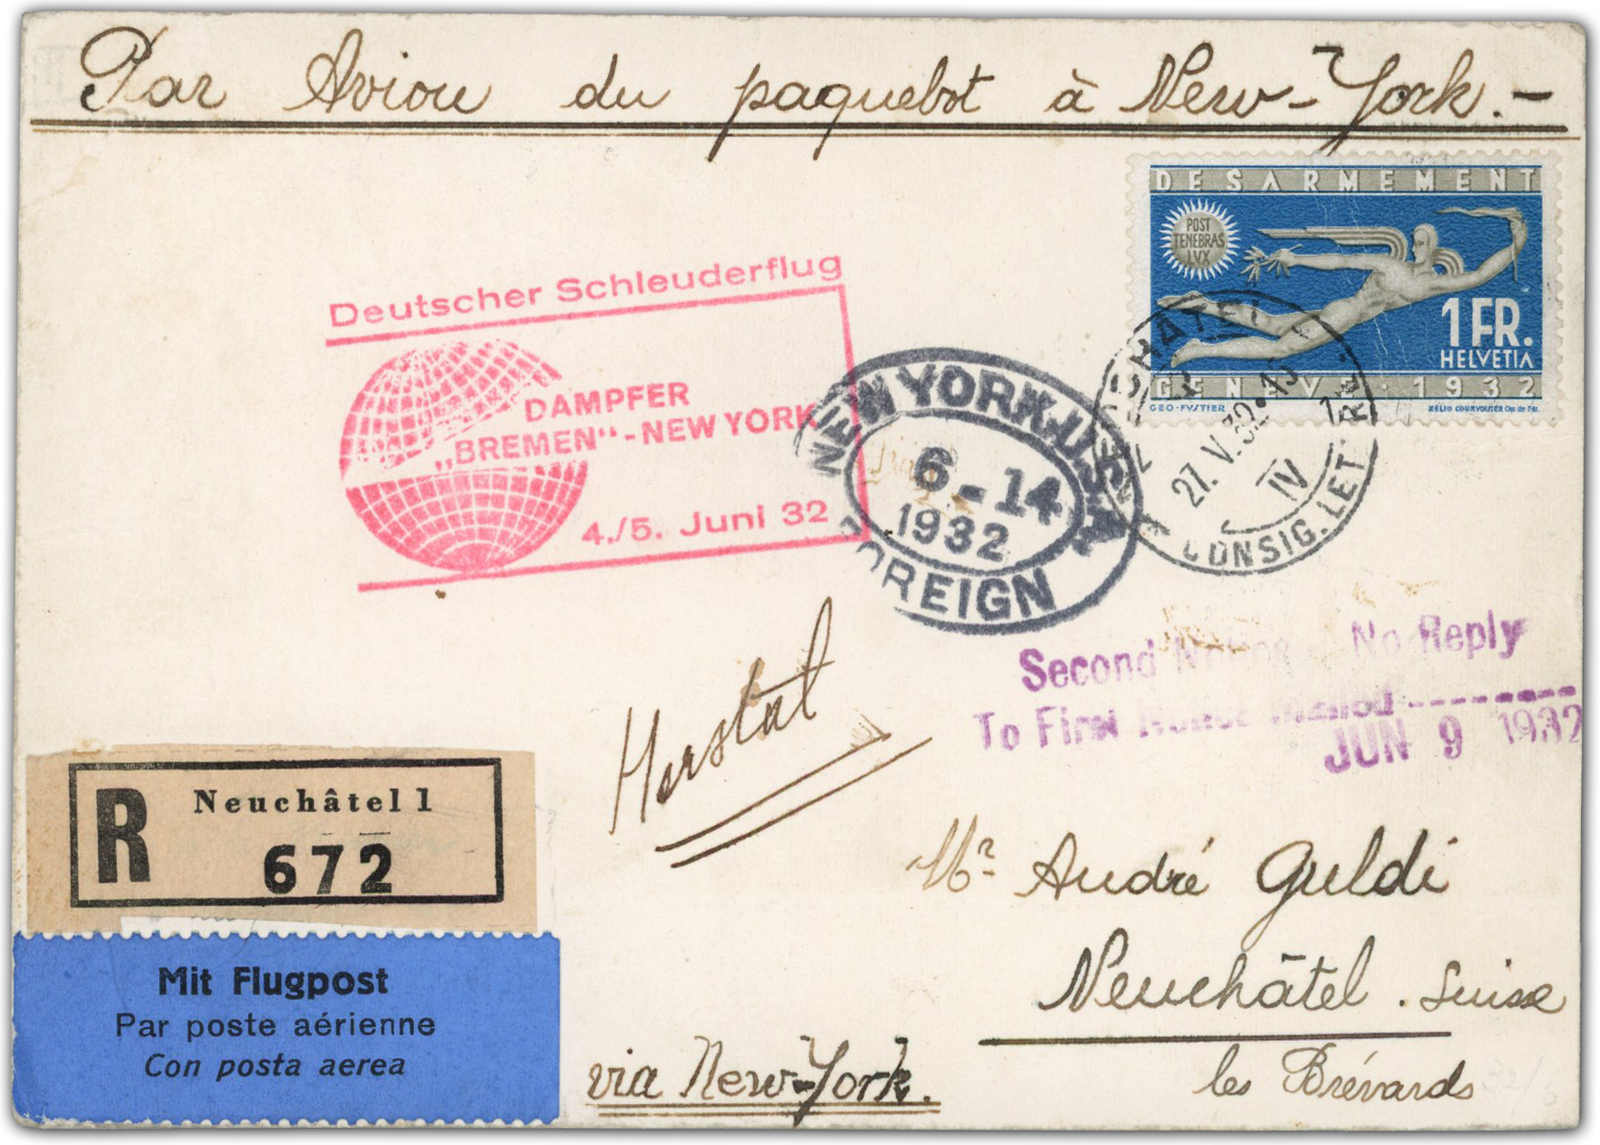 Par Avion du paquebot à New-York.-
DESARMEMENT
POST
TENEBRAS
LVX
1 FR.
HELVETIA
GENÈVE·1932
GEO·FVSTIER
Deutscher Schleuderflug
DAMPFER
„BREMEN"-NEW YORK
4./5. Juni 32
NEW YORK, U.S.A.
6-14
1932
FOREIGN
27.V.32
IV
CONSIG. LETTR
Second No Reply
To First
JUN 9 1932
R
Neuchâtel 1
672
Mit Flugpost
Par poste aérienne
Con posta aerea
Mr André Guldi
Neuchâtel. Suisse
les Brévards
via New-York.